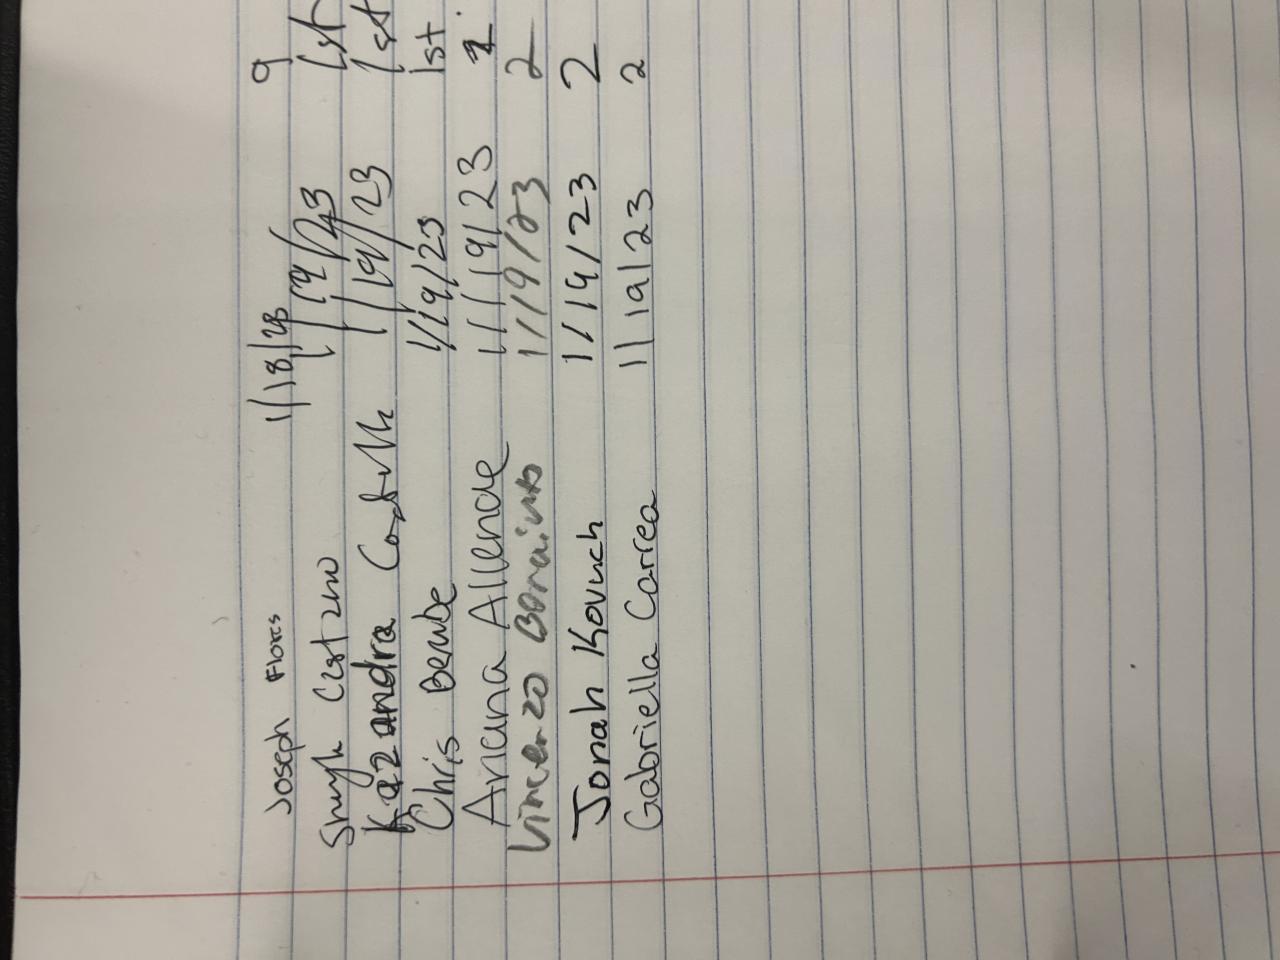 Joseph Flores 1/18/23 9
1/19/23 1st
Kazandra 1/19/23 1st
Chris Berube 1/19/23 1st
Ariana Allende 1/19/23 2
Vincenzo 1/19/23 2
Jonah Kovach 1/19/23 2
Gabriella Correa 1/19/23 2